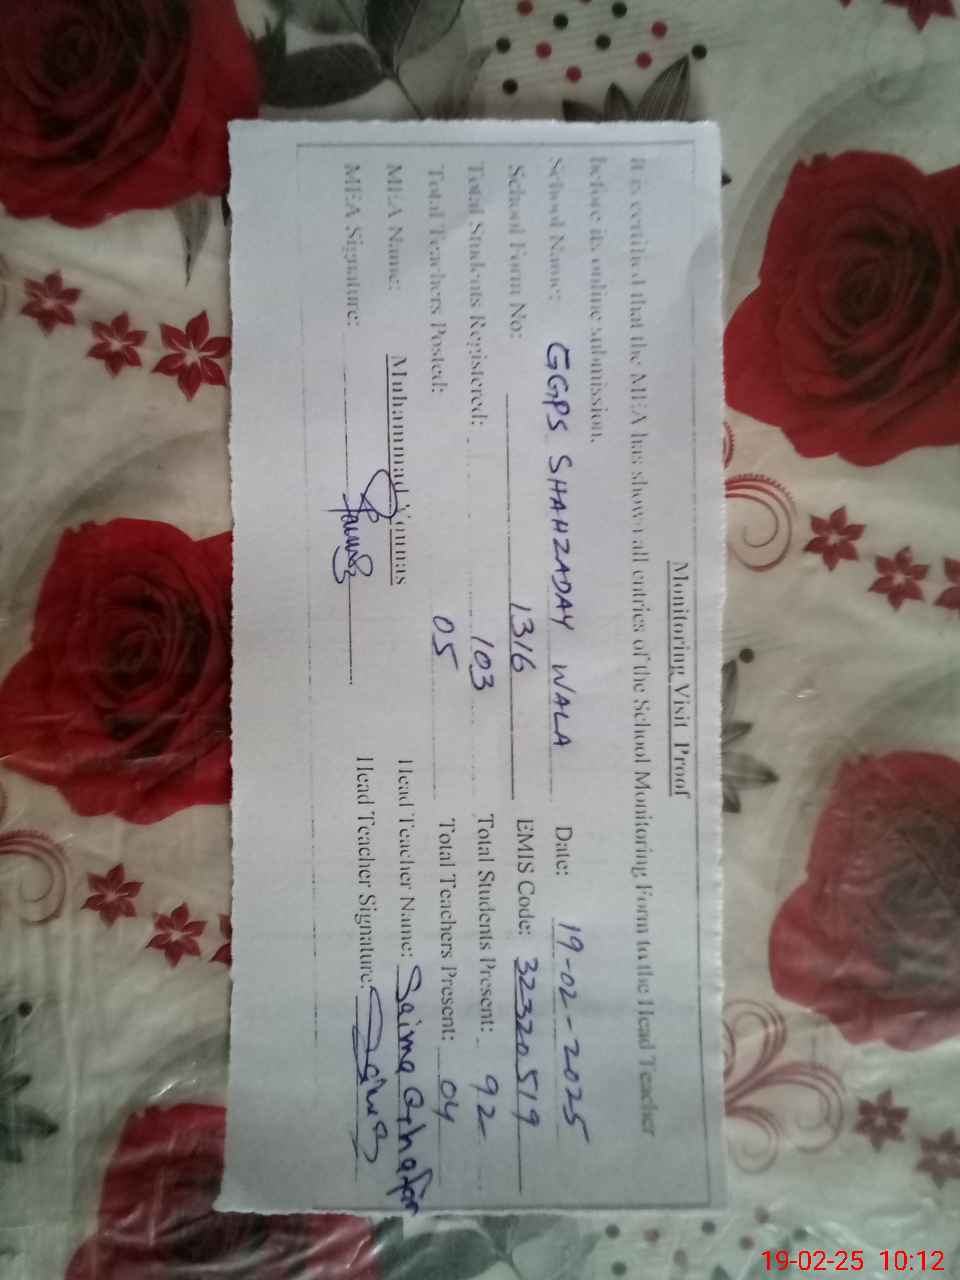 Monitoring Visit Proof
It is certified that the MEA has shown all entries of the School Monitoring Form to the Head Teacher
before its online submission.
School Name: GGPS SHAHZADAY WALA Date: 19-02-2025
School Form No: 1316 EMIS Code: 32320519
Total Students Registered: 103 Total Students Present: 92
Total Teachers Posted: 05 Total Teachers Present: 04
MEA Name: Muhammad Younas Head Teacher Name: Saima Ghafar
MEA Signature: Head Teacher Signature:
19-02-25 10:12